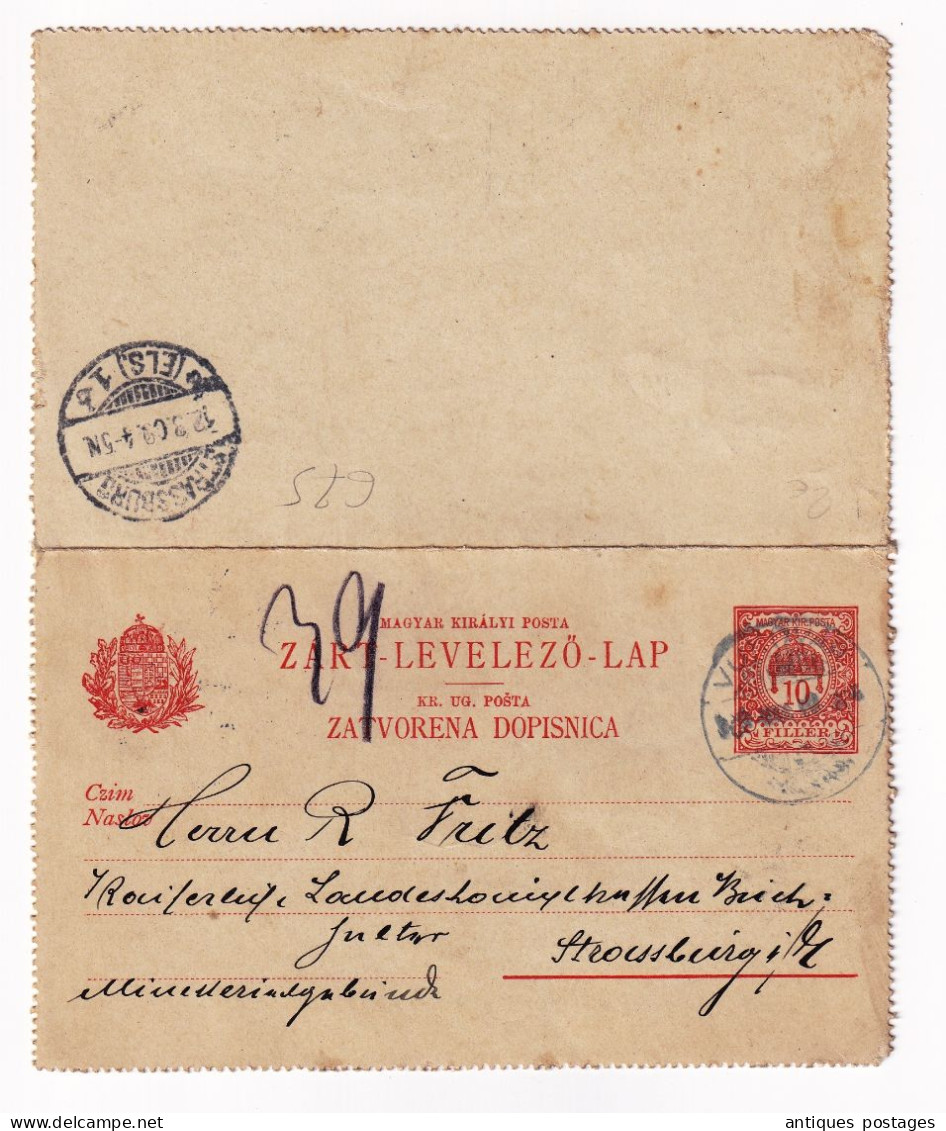 (ELS) 1 b
12.3.09. 4-5N
STRASSBURG
675
39
MAGYAR KIRÁLYI POSTA
ZÁRT-LEVELEZŐ-LAP
KR. UG. POŠTA
ZATVORENA DOPISNICA
MAGYAR KIR. POSTA
10
FILLER
Czim
Naslov
Herrn R Fritz
Kaiserlich. Buch=
halter
Strassburg i/E
Ministerialgebäude
antiques postages